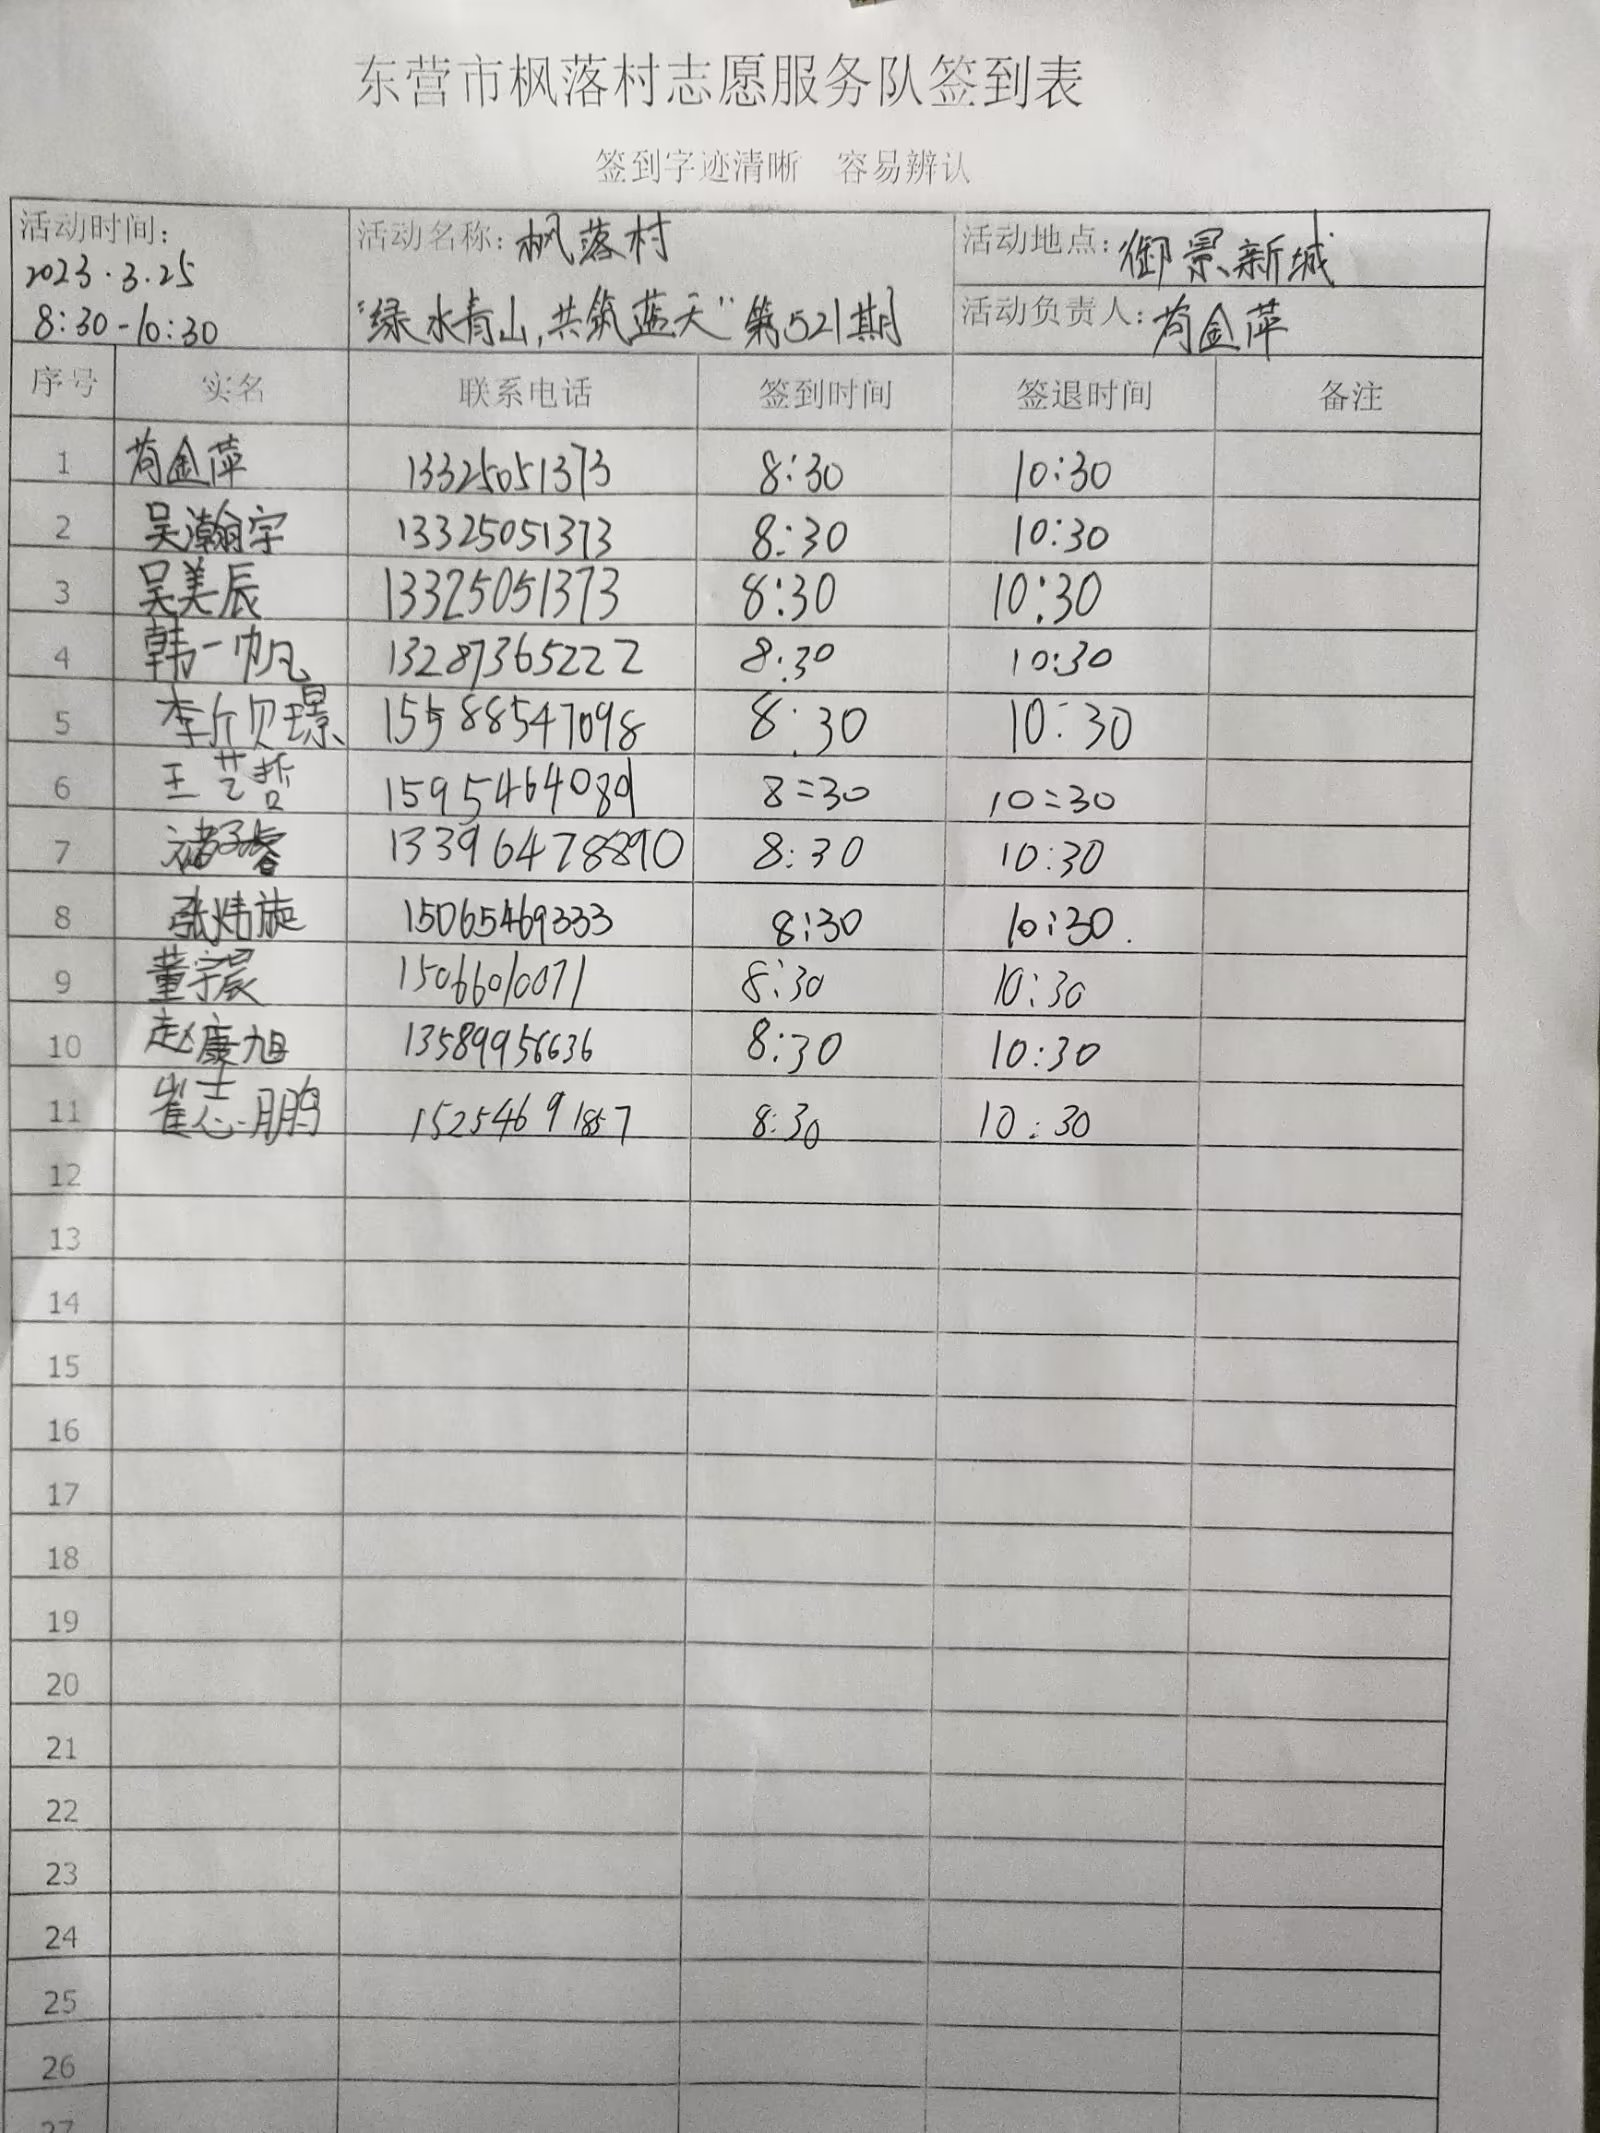 东营市枫落村志愿服务队签到表
签到字迹清晰 容易辨认
活动时间: 2023.3.25 8:30-10:30
活动名称: 枫落村 "绿水青山,共筑蓝天"第521期
活动地点: 御景新城
活动负责人: 荀金萍
序号 实名 联系电话 签到时间 签退时间 备注
1 荀金萍 13325051373 8:30 10:30
2 吴瀚宇 13325051373 8:30 10:30
3 吴美辰 13325051373 8:30 10:30
4 韩一帆 13287365222 8:30 10:30
5 15588547098 8:30 10:30
6 王艺哲 1595464089 8:30 10:30
7 褚子睿 13396478890 8:30 10:30
8 张炜旋 15065469333 8:30 10:30.
9 董宇宸 15066010071 8:30 10:30
10 赵康旭 13589956636 8:30 10:30
11 崔志鹏 15254691857 8:30 10:30
12
13
14
15
16
17
18
19
20
21
22
23
24
25
26
27